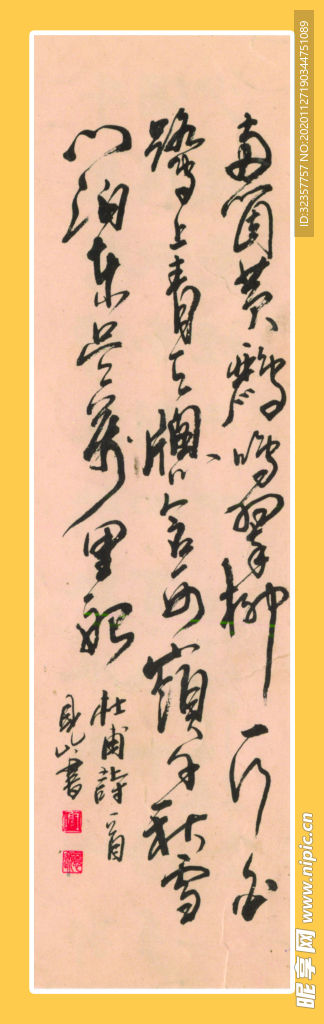 两箇黄鹂鸣翠柳一行白
鹭上青天牕含西嶺千秋雪
门泊東吴萬里船
杜甫詩一首
见山書
ID:32357757 NO:20201127190344751089
昵享网 www.nipic.cn